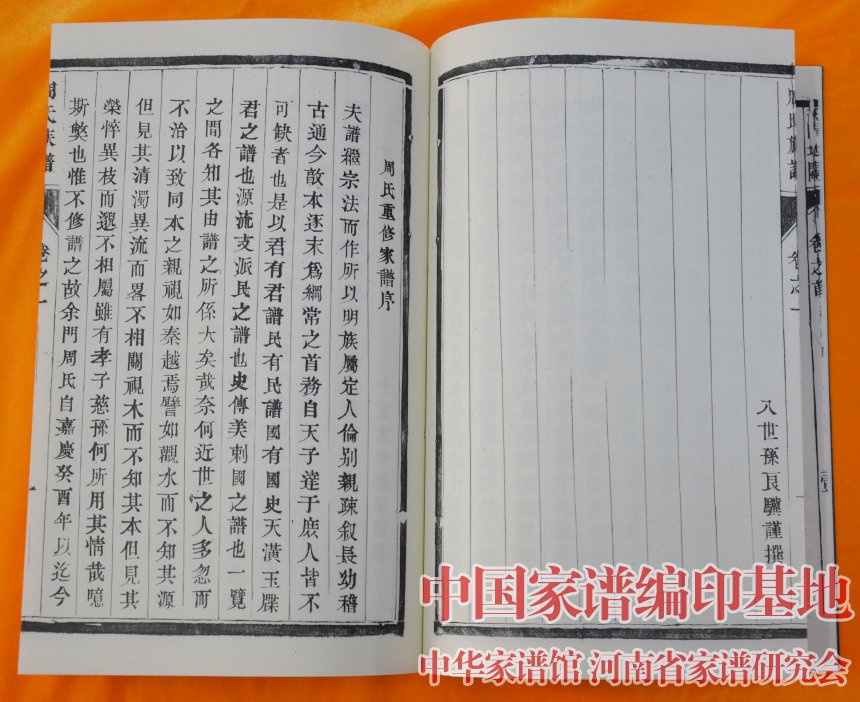 卷之首
周氏族譜 卷之一
八世孫良驥謹撰
周氏重修家譜序
夫譜繼宗法而作所以明族屬定人倫别親疎叙長幼稽
古通今敦本逐末爲綱常之首務自天子達于庻人皆不
可缺者也是以君有君譜民有民譜國有國史天潢玉牒
君之譜也源流支派民之譜也史傳美刺國之譜也一覽
之間各知其由譜之所係大矣哉奈何近世之人多忽而
不治以致同本之親視如秦越焉譬如觀水而不知其源
但見其清濁異流而畧不相關視木而不知其本但見其
榮悴異枝而邈不相屬雖有孝子慈孫何所用其情哉噫
斯獘也惟不修譜之故余門周氏自嘉慶癸酉年以迄今
周氏族譜 卷之一
中国家谱编印基地
中华家谱馆 河南省家谱研究会